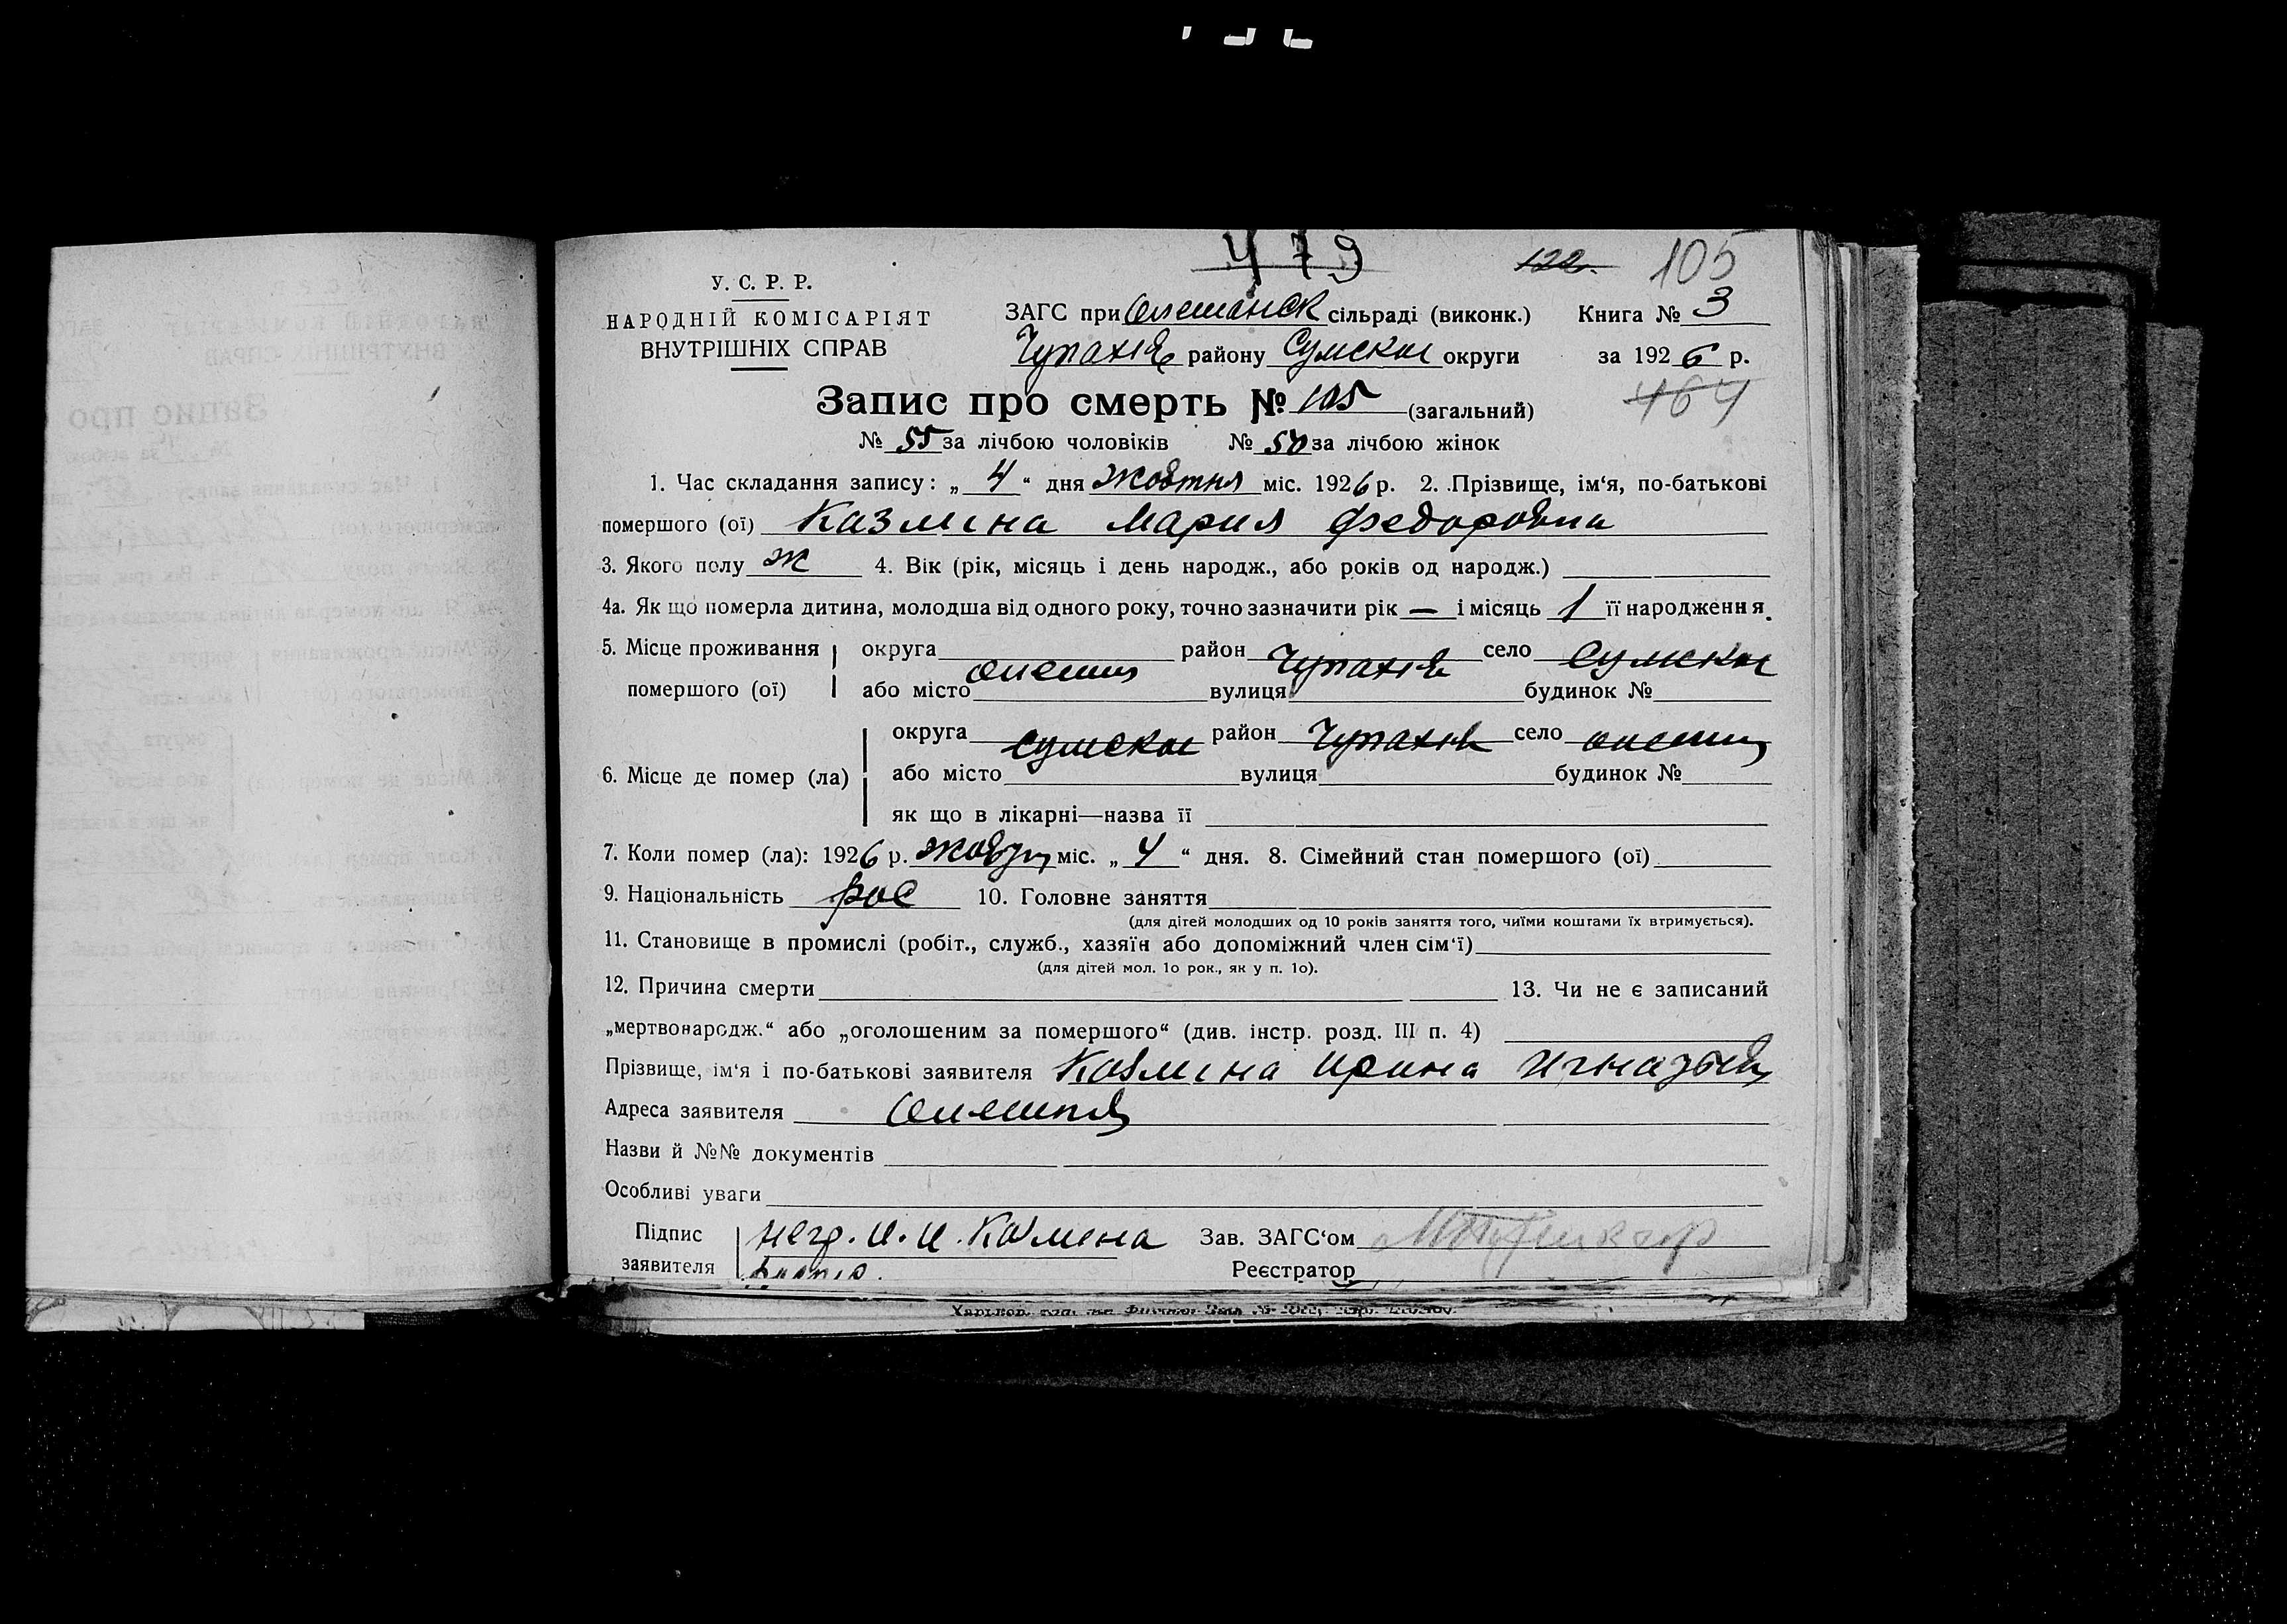 479
122. 105
У. С. Р. Р.
НАРОДНІЙ КОМІСАРІЯТ
ВНУТРІШНІХ СПРАВ
ЗАГС при Олешанск сільраді (виконк.) Книга № 3
Чупахів району Сумской округи за 1926 р.
Запис про смерть № 105 (загальний) 464
№ 55 за лічбою чоловіків № 50 за лічбою жінок
1. Час складання запису: „ 4 “ дня жовтня міс. 1926 р. 2. Прізвище, ім‘я, по-батькові
помершого (ої) Казмина Мария Федоровна
3. Якого полу ж 4. Вік (рік, місяць і день народж., або років од народж.)
4а. Як що померла дитина, молодша від одного року, точно зазначити рік — і місяць 1 її народження.
5. Місце проживання округа район Чупахів село Сумской
помершого (ої) або місто вулиця будинок №
округа Сумской район Чупахів село
6. Місце де помер (ла) або місто вулиця будинок №
як що в лікарні—назва її
7. Коли помер (ла): 1926 р. міс. „ 4 “ дня. 8. Сімейний стан помершого (ої)
9. Національність рос 10. Головне заняття
(для дітей молодших од 10 років заняття того, чиїми коштами їх втримується).
11. Становище в промислі (робіт., служб., хазяїн або допоміжний член сім‘ї)
(для дітей мол. 1о рок., як у п. 1о).
12. Причина смерти 13. Чи не є записаний
„мертвонародж.“ або „оголошеним за помершого“ (див. інстр. розд. III п. 4)
Прізвище, ім‘я і по-батькові заявителя Казмина Ирина
Адреса заявителя
Назви й №№ документів
Особливі уваги
Підпис негр. И. И. Казмина Зав. ЗАГС‘ом
заявителя Реєстратор